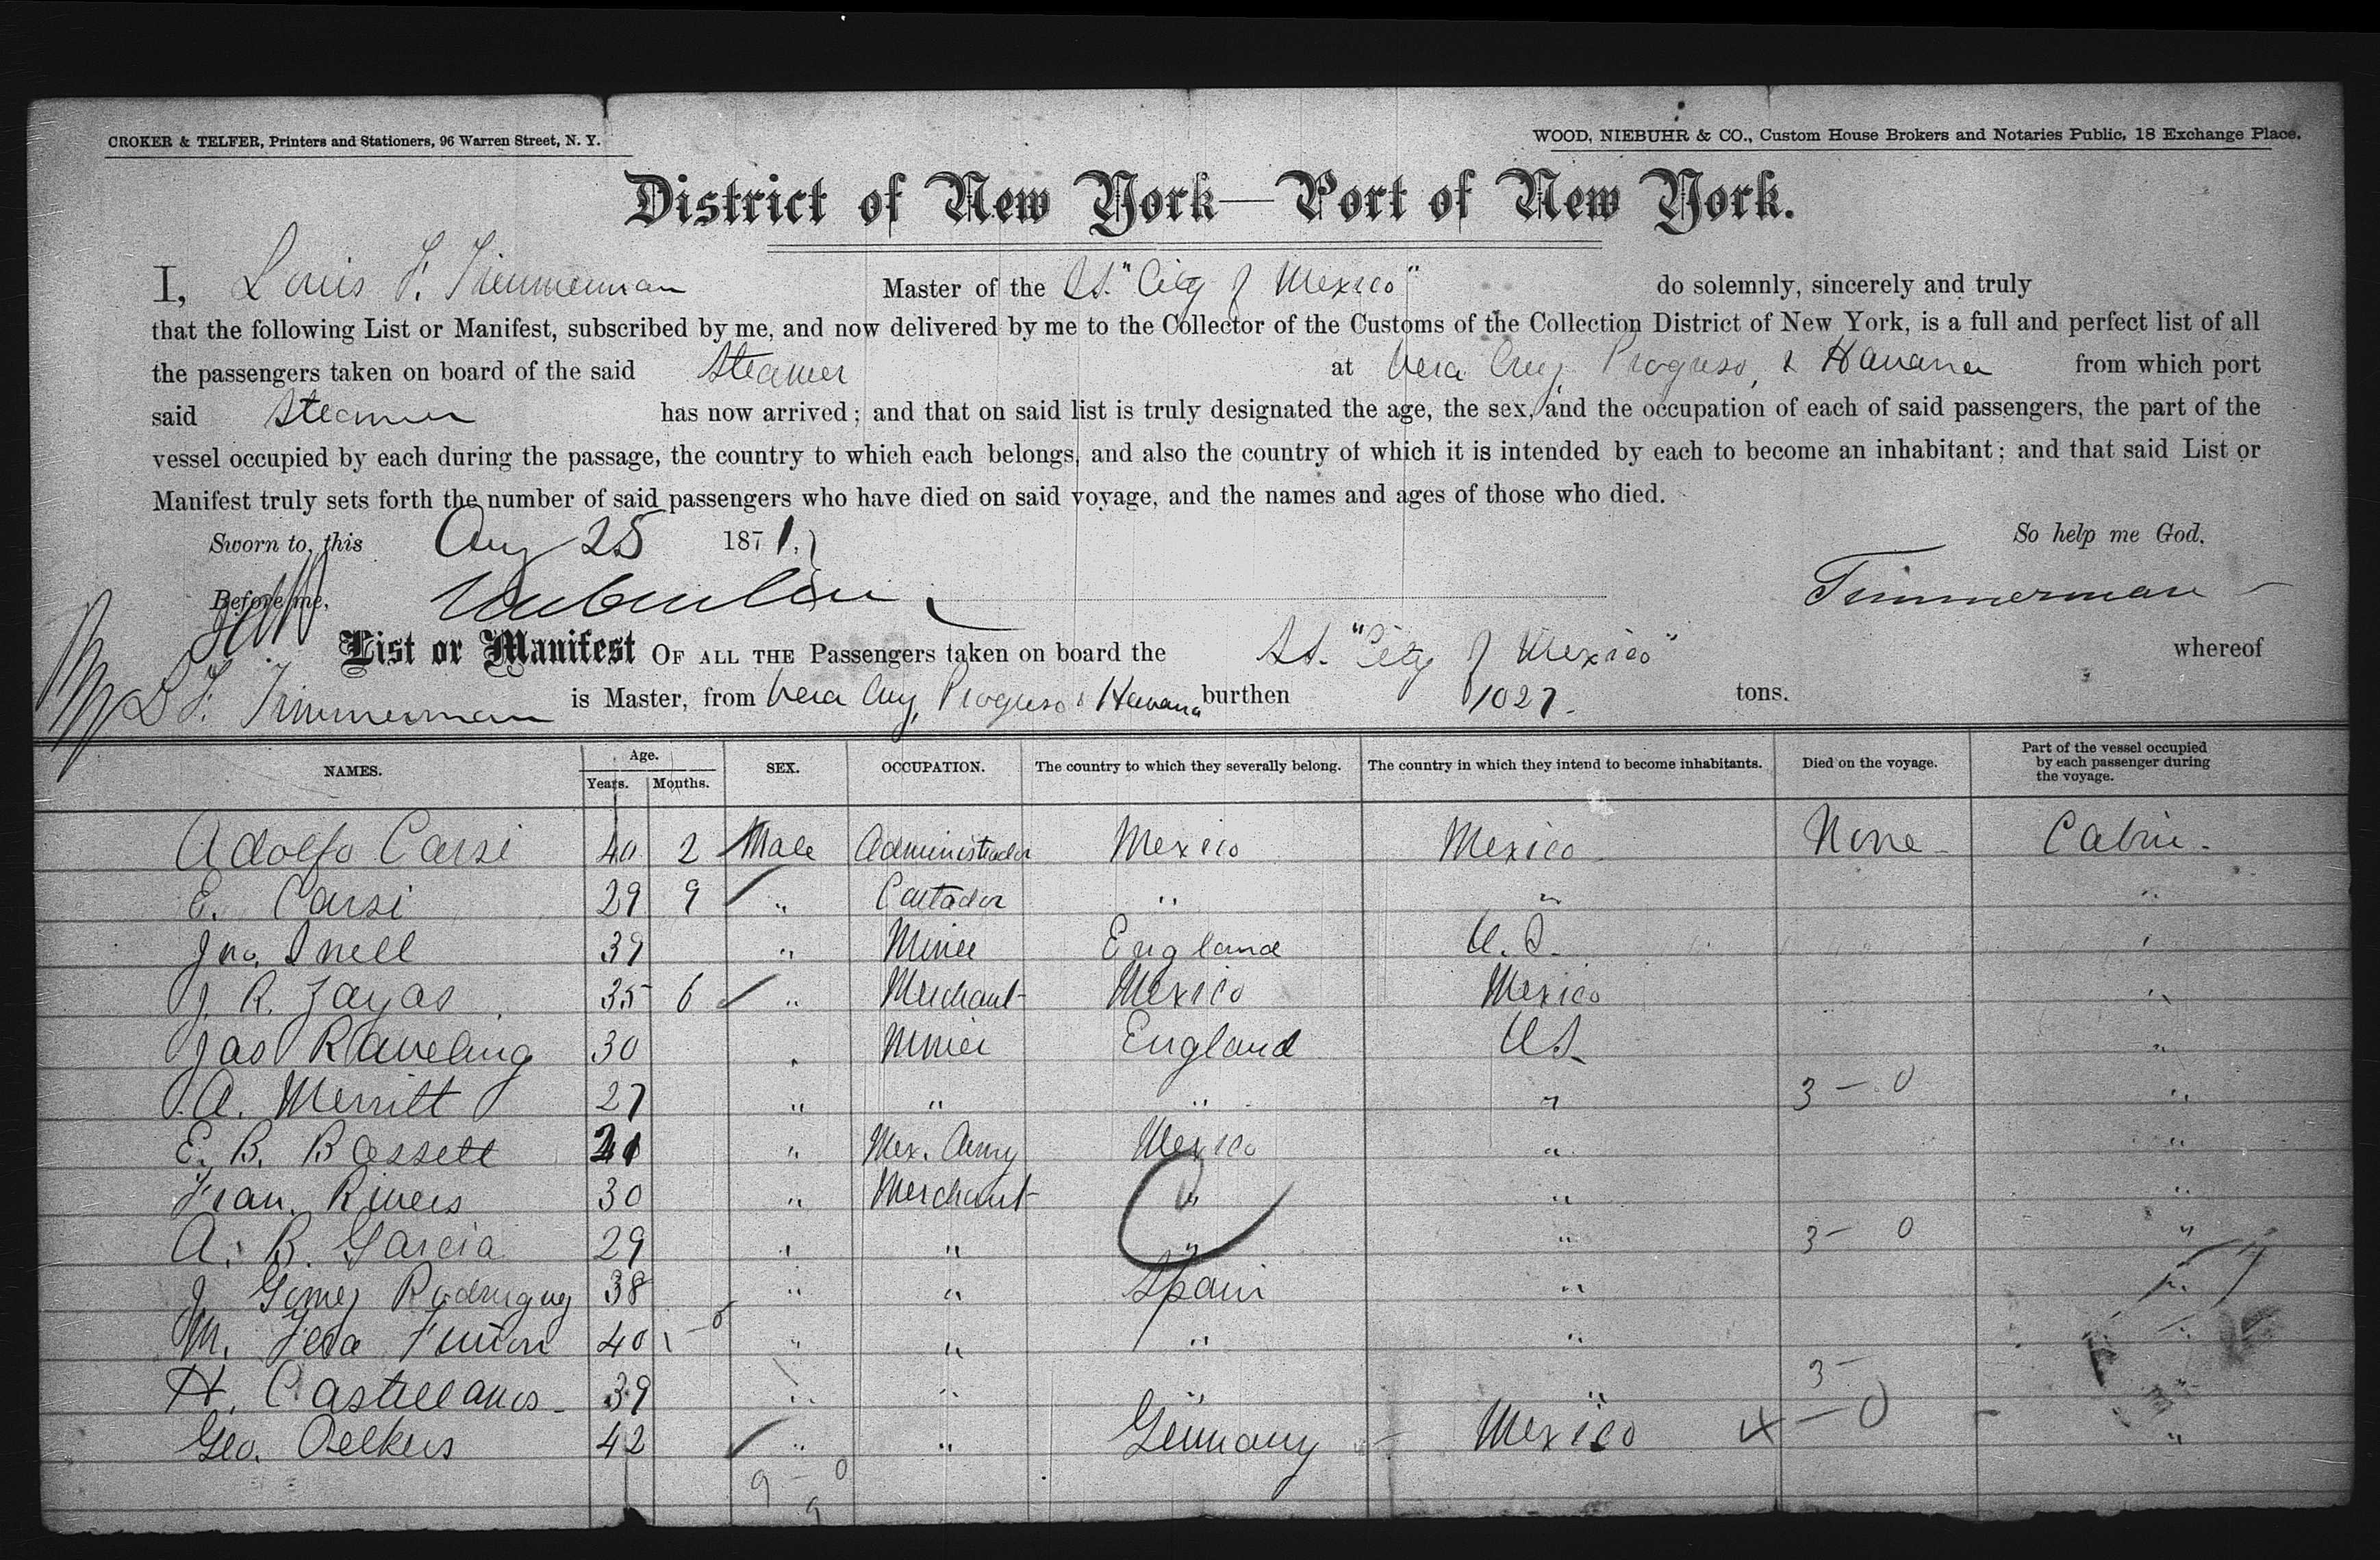 CROKER & TELFER, Printers and Stationers, 96 Warren Street, N. Y.
WOOD, NIEBUHR & CO., Custom House Brokers and Notaries Public, 18 Exchange Place.
District of New York—Port of New York.
I, Louis F. Timmerman Master of the SS. "City of Mexico" do solemnly, sincerely and truly
that the following List or Manifest, subscribed by me, and now delivered by me to the Collector of the Customs of the Collection District of New York, is a full and perfect list of all
the passengers taken on board of the said Steamer at Vera Cruz, Progreso, & Havana from which port
said Steamer has now arrived; and that on said list is truly designated the age, the sex, and the occupation of each of said passengers, the part of the
vessel occupied by each during the passage, the country to which each belongs, and also the country of which it is intended by each to become an inhabitant; and that said List or
Manifest truly sets forth the number of said passengers who have died on said voyage, and the names and ages of those who died.
Sworn to, this Aug 25 1871. So help me God.
Before me, Timmerman
List or Manifest OF ALL THE Passengers taken on board the SS. "City of Mexico" whereof
L F. Timmerman is Master, from Vera Cruz, Progreso & Havana burthen 1027 tons.
NAMES. Age. Years. Months. SEX. OCCUPATION. The country to which they severally belong. The country in which they intend to become inhabitants. Died on the voyage. Part of the vessel occupied by each passenger during the voyage.
Adolfo Carsi 40 2 Male Administrador Mexico Mexico None Cabin.
E. Carsi 29 9 " " " "
Jno. Snell 39 " Miner England U.S. "
J. R. Zayas 35 6 " Merchant Mexico Mexico "
Jas Raveling 30 " Miner England US "
A. Merritt 27 " " " " 3 — 0 "
E. B. Bassett 21 " Mex. Army Mexico " "
Fran. Rivers 30 " Merchant " " "
A. B. Garcia 29 " " " " 3 - 0 "
J Gomez Rodriguez 38 " " Spain " "
M. 40 " " " " "
H. Castellanos 39 " " " " 3 - "
Geo. Oelkers 42 " " Germany Mexico 4 — 0 "
9 - 0
9